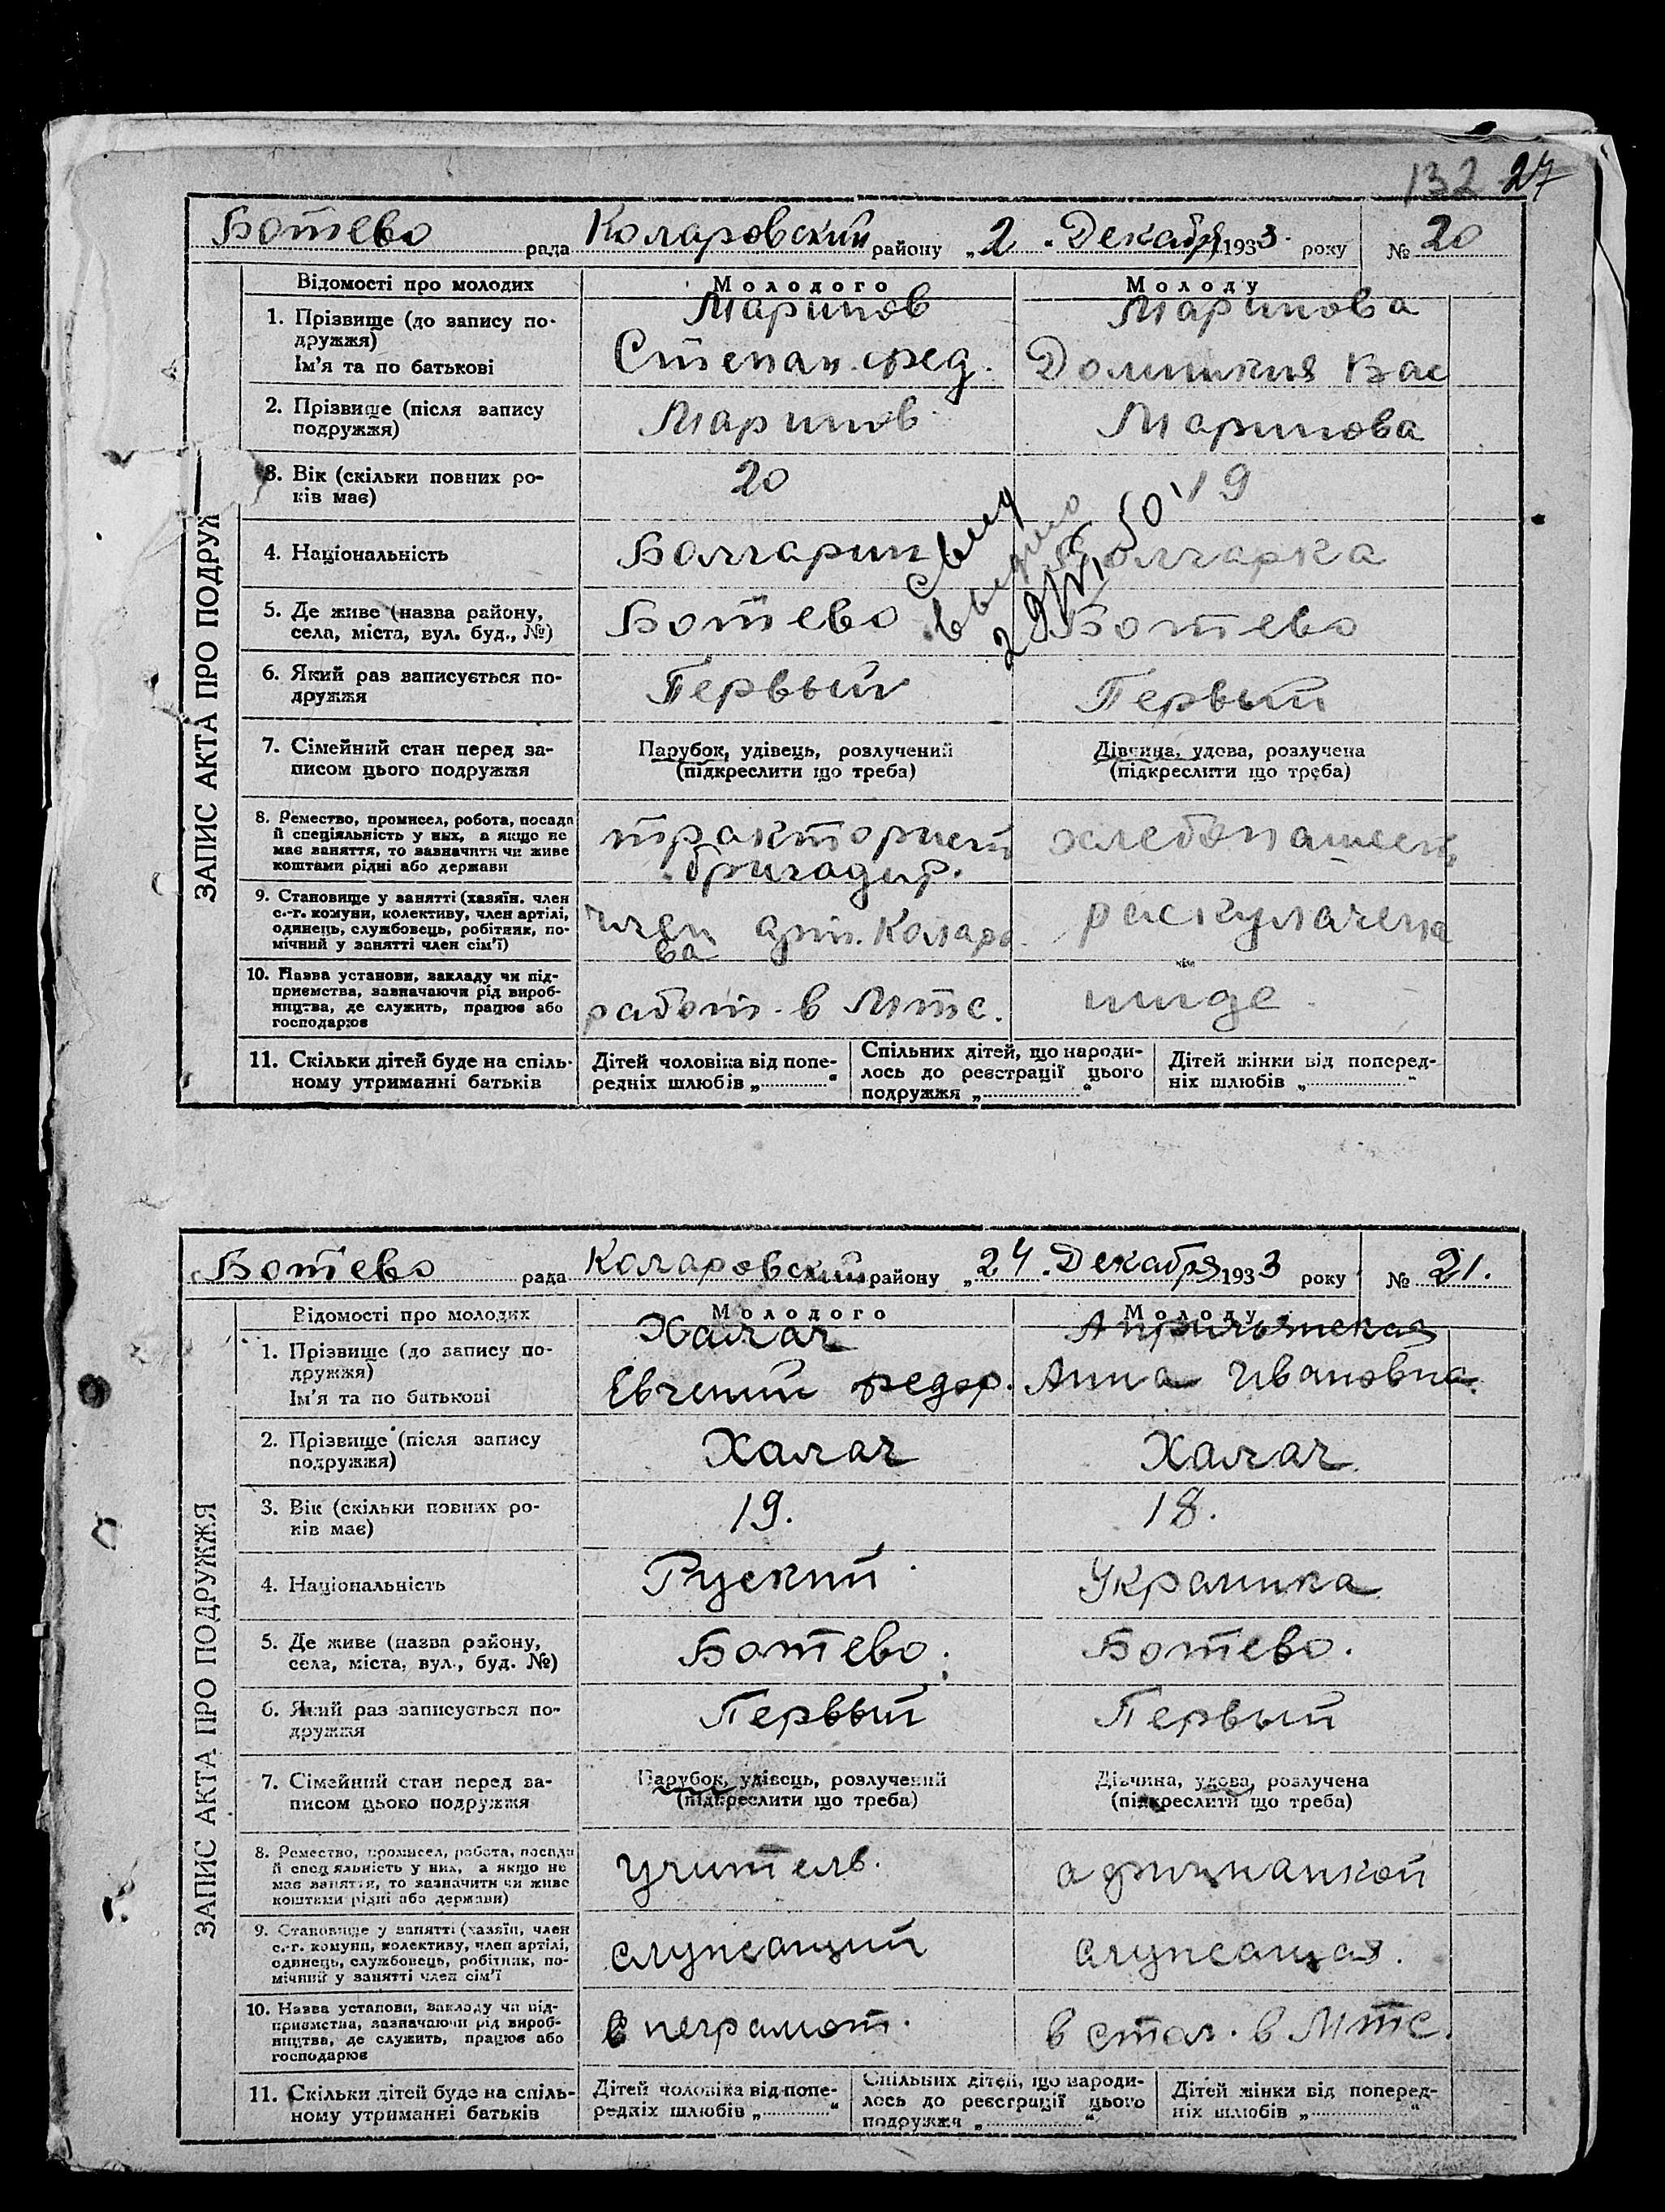 132 27
Ботево рада Коларовский району „2" Декабря 1933 року № 20
ЗАПИС АКТА ПРО ПОДРУЖ
Відомості про молодих Молодого Молоду
1. Прізвище (до запису по- Маринов Маринова
дружжя)
Ім'я та по батькові Степан фед. Вас
2. Прізвище (після запису Маринов Маринова
подружжя)
3. Вік (скільки повних ро- 20 19
ків має)
4. Національність Болгарин Болгарка
5. Де живе (назва району, Ботево Ботево
села, міста, вул. буд., №)
свид
видано
50
6. Який раз записується по- Первый Первый
дружжя
7. Сімейний стан перед за- Парубок, удівець, розлучений Дівчина, удова, розлучена
писом цього подружжя (підкреслити що треба) (підкреслити що треба)
8. Ремество, промисел, робота, посада тракторист хлебопашест
й спеціяльність у них, а якщо не бригадир.
має заняття, то зазначити чи живе
коштами рідні або держави
9. Становище у занятті (хазяїн. член член арт. Коларо раскулачена
с.-г. комуни, колективу, член артілі, ва
одинець, службовець, робітник, по-
мічний у занятті член сім'ї)
10. Назва установи, закладу чи під- работ. в Мтс. нигде.
приємства, зазначаючи рід вироб-
ництва, де служить, працює або
господарює
11. Скільки дітей буде на спіль- Дітей чоловіка від попе- Спільних дітей, що народи- Дітей жінки від поперед-
ному утриманні батьків редніх шлюбів „ “ лось до реєстрації цього ніх шлюбів „ “
подружжя „ “
Ботево рада Коларовский району „24" Декабря 1933 року № 21.
ЗАПИС АКТА ПРО ПОДРУЖЖЯ
Відомості про молодих Молодого Молоду
1. Прізвище (до запису по- Халаг
дружжя)
Ім'я та по батькові Евгений федор. Анна Ивановна
2. Прізвище (після запису Халаг Халаг
подружжя)
3. Вік (скільки повних ро- 19. 18.
ків має)
4. Національність Руский Украинка
5. Де живе (назва району, Ботево. Ботево.
села, міста, вул., буд. №)
6. Який раз записується по- Первый Первый
дружжя
7. Сімейний стан перед за- Парубок, удівець, розлучений Дівчина, удова, розлучена
писом цього подружжя (підкреслити що треба) (підкреслити що треба)
8. Ремество, промисел, робота, посада учитель.
й спеціяльність у них, а якщо не
має заняття, то зазначити чи живе
коштами рідні або держави)
9. Становище у занятті (хазяїн, член служащий служащая.
с.-г. комуни, колективу, член артілі,
одинець, службовець, робітник, по-
мічний у занятті член сім'ї
10. Назва установи, закладу чи під- в неграмот. в стол. в Мтс.
приємства, зазначаючи рід вироб-
ництва, де служить, працює або
господарює
11. Скільки дітей буде на спіль- Дітей чоловіка від попе- Спільних дітей, що народи- Дітей жінки від поперед-
ному утриманні батьків редніх шлюбів „ “ лось до реєстрації цього ніх шлюбів „ “
подружжя „ “